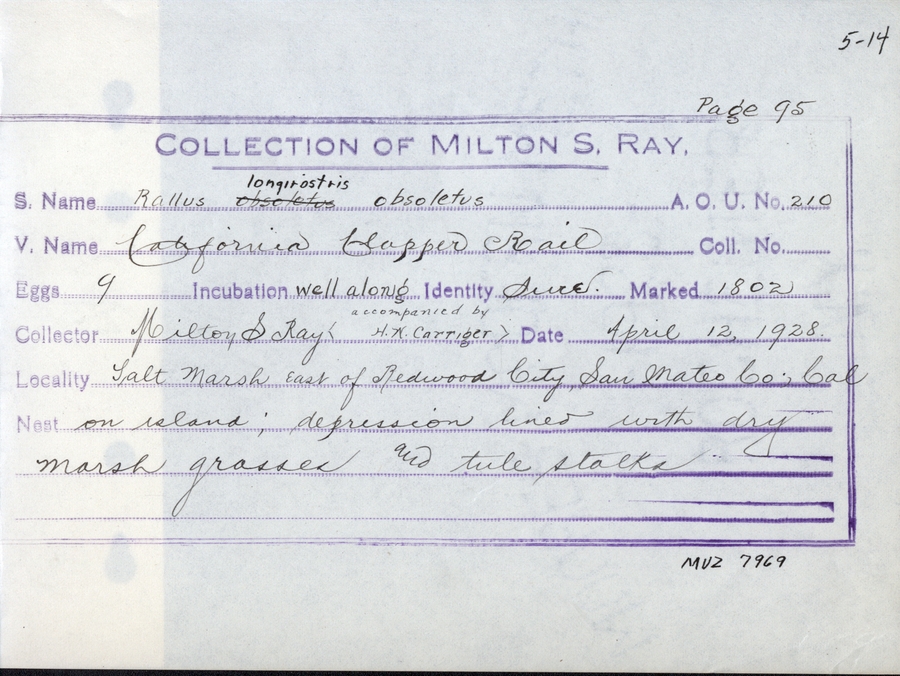 5-14
Page 95
COLLECTION OF MILTON S. RAY.
longirostris
S. Name Rallus obsoletus obsoletus A. O. U. No. 210
V. Name California Clapper Rail Coll. No.
Eggs 9 Incubation well along Identity Sure. Marked 1802
accompanied by
Collector Milton S Ray ( H.W. Carriger ) Date April 12, 1928.
Locality Salt Marsh East of Redwood City, San Mateo Co; Cal
Nest on island; depression lined with dry
marsh grasses and tule stalks
MVZ 7969